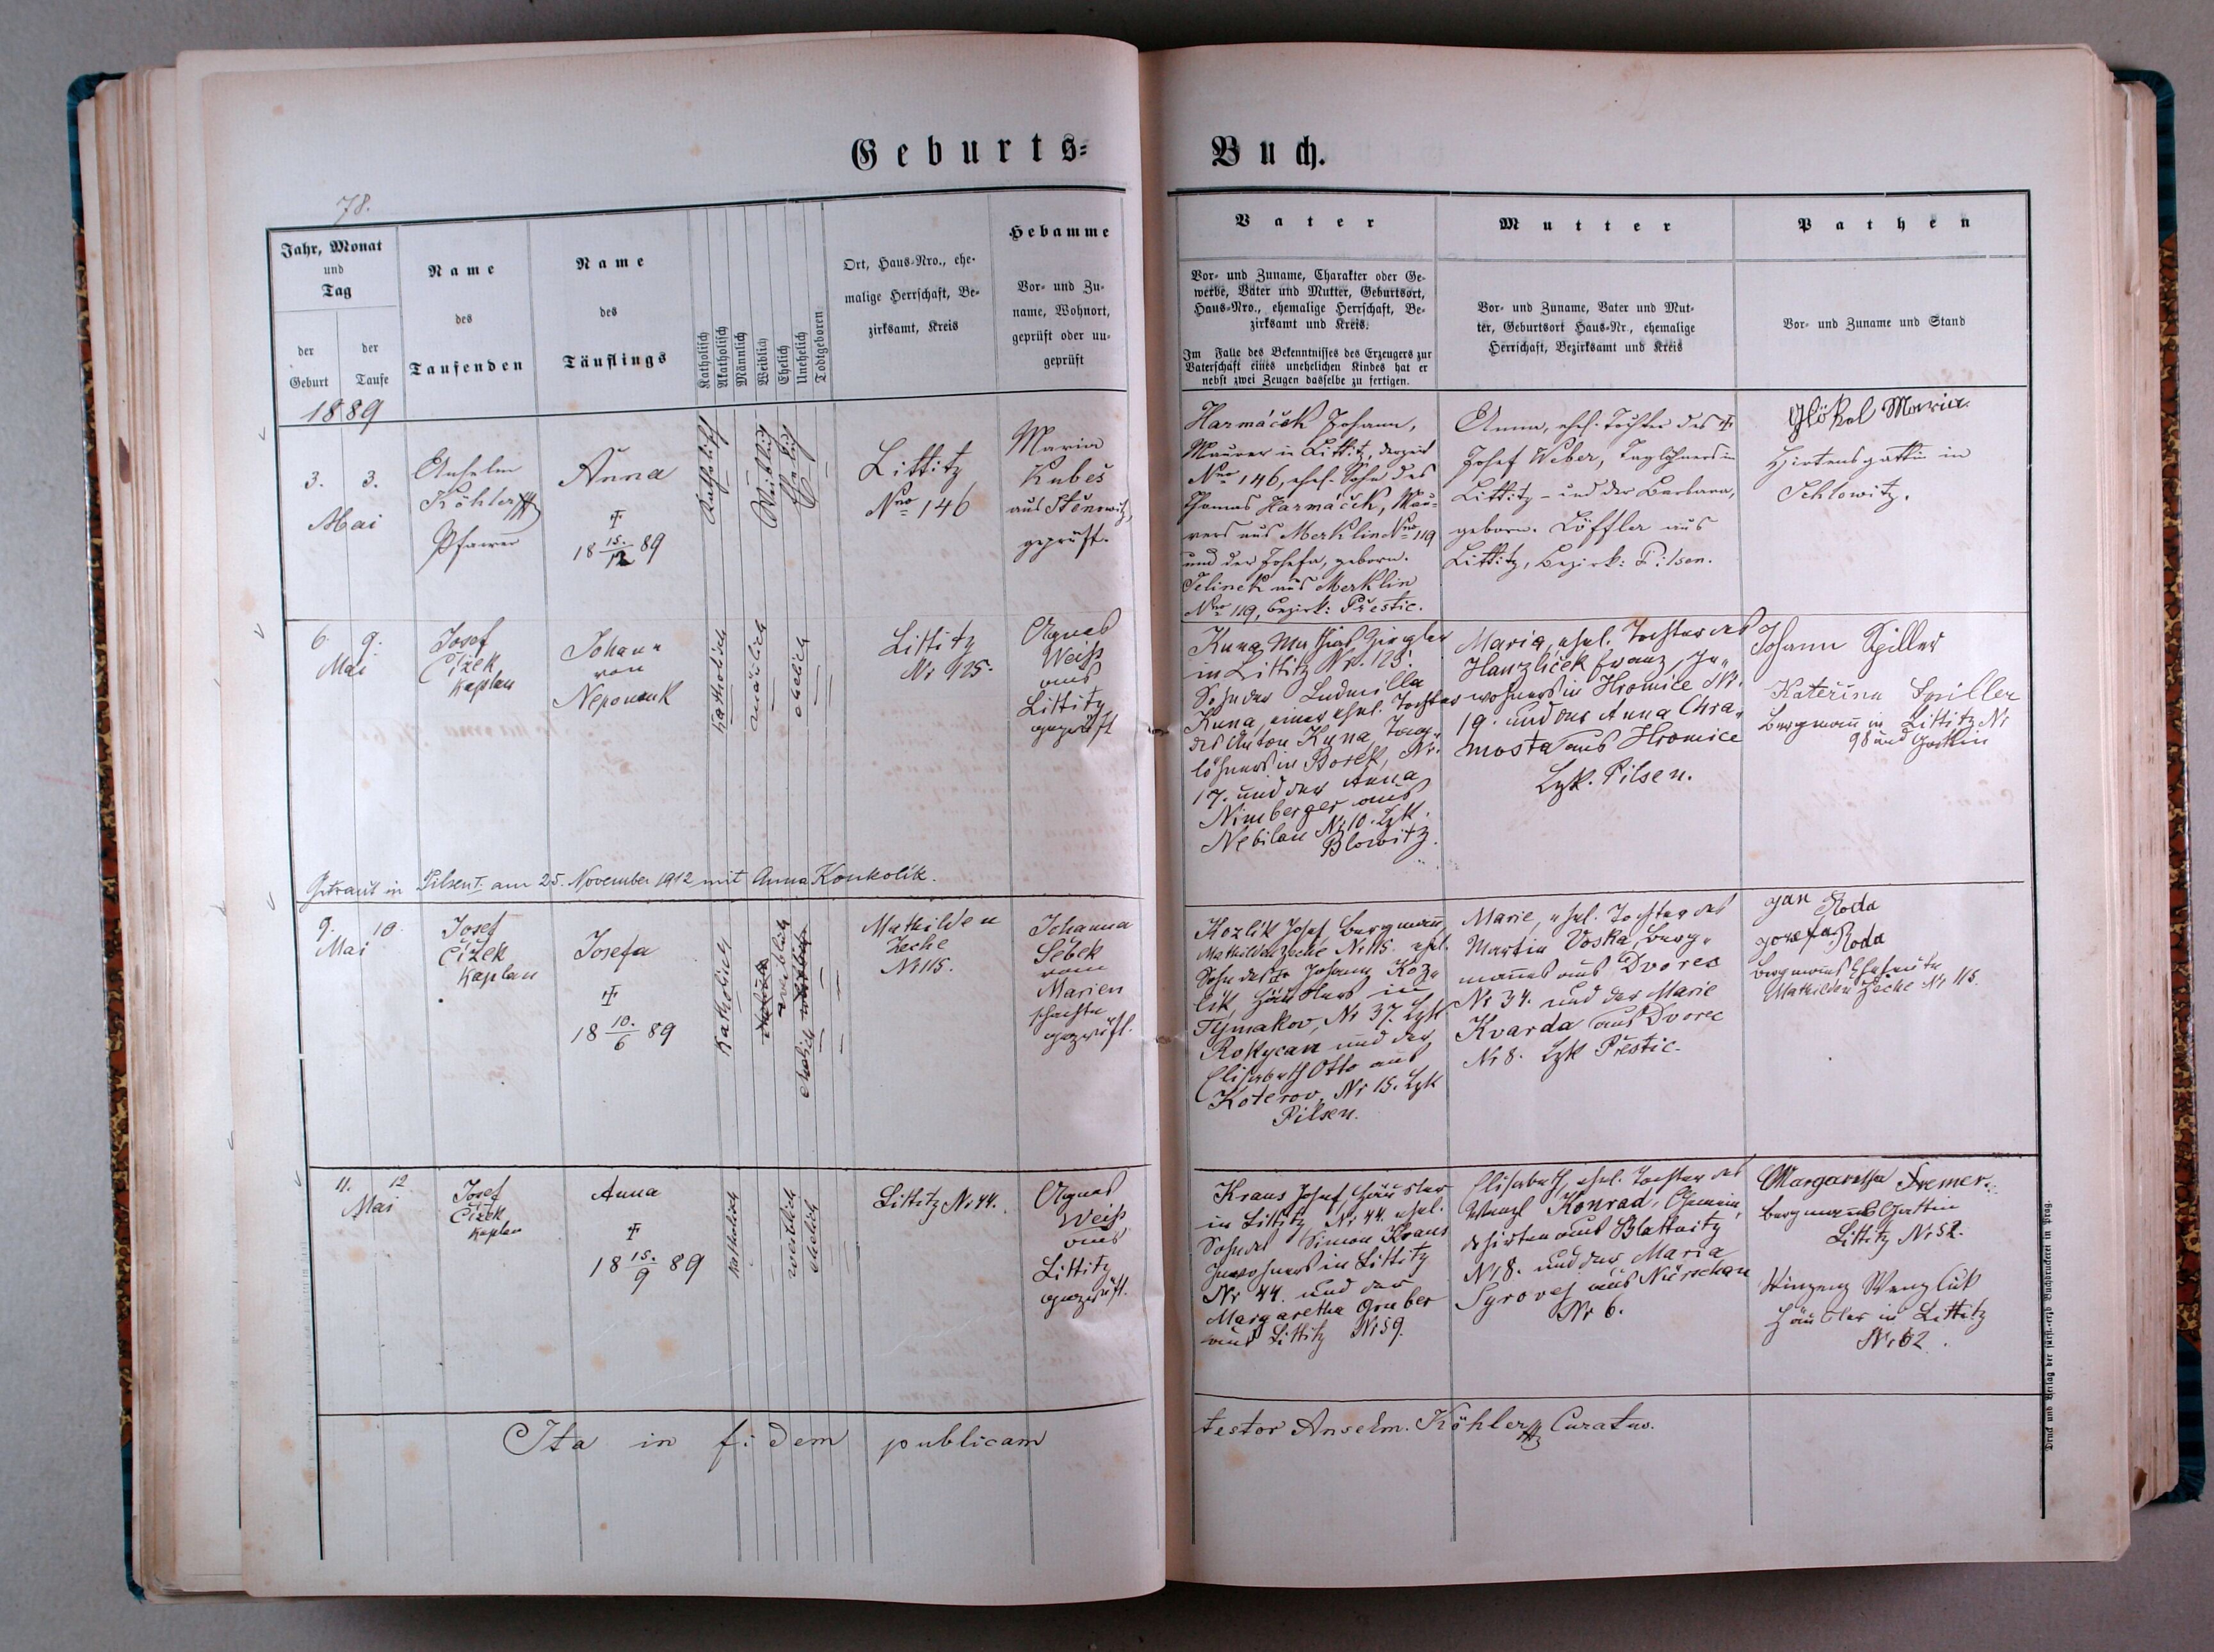 Geburts=
Buch.
78.
Jahr, Monat
und
Tag
der
Geburt
der
Taufe
Name
des
Taufenden
Name
des
Täuflings
Katholisch
Akatholisch
Männlich
Weiblich
Ehelich
Unehelich
Todtgeboren
Ort, Haus-Nro., ehe-
malige Herrschaft, Be-
zirksamt, Kreis
Hebamme
Vor- und Zu-
name, Wohnort,
geprüft oder un-
geprüft
Vater
Vor- und Zuname, Charakter oder Ge-
werbe, Väter und Mutter, Geburtsort,
Haus-Nro., ehemalige Herrschaft, Be-
zirksamt und Kreis.
Im Falle des Bekenntnisses des Erzeugers zur
Vaterschaft eines unehelichen Kindes hat er
nebst zwei Zeugen dasselbe zu fertigen.
Mutter
Vor- und Zuname, Vater und Mut-
ter, Geburtsort Haus-Nr., ehemalige
Herrschaft, Bezirksamt und Kreis
Pathen
Vor- und Zuname und Stand
1889
3. 3.
Mai
Anselm
Köhler
Pfarrer
Anna
†
18 15./12 89
Katholisch
Weiblich
Ehelich
Littitz
Nro 146
Maria
Kubeš
aus Stěnowitz,
geprüft.
Harmáček Johann,
Maurer in Littitz, derzeit
Nro 146, ehel. Sohn des
Thomas Harmáček, Mau-
rers aus Merklin Nro 119
und der Josefa, geborn.
Jelinek aus Merklin
Nro 119, Bezirk: Přestic.
Anna, ehel. Tochter des †
Josef Weber, Taglöhners in
Littitz - und der Barbara,
geborn. Löffler aus
Littitz, Bezirk: Pilsen.
Glökol Maria
Hirtensgattin in
Schlowitz.
6. 9.
Mai
Josef
Čižek
Kaplan
Johann
von
Nepomuk
katholisch
männlich
ehelich
Littitz
Nr 125.
Agnes
Weiss
aus
Littitz
geprüft
Kuna Mathias Ziegler
in Littitz Nr. 125.
Sohn der Ludmilla
Kuna, einer ehel. Tochter
des Anton Kuna, Tag-
löhners in Borek, Nr.
17. und der Anna
Nimberger aus
Nebilau Nr 10. Bzk.
Blowitz.
Maria, ehel. Tochter des
Hanzliček Franz, In-
wohners in Hromice Nr.
19. und der Anna Chra-
mosta aus Hromice
Bzk. Pilsen.
Johann Spiller
Kateřina Spiller
Bergmann in Littitz Nr
98 und Gattin
Getraut in Pilsen I. am 25. November 1912 mit Anna Konkolik.
9. 10.
Mai
Josef
Čižek
Kaplan
Josefa
†
18 10./6 89
Katholisch
weiblich
ehelich
Mathilden
Zeche
Nr 115.
Johanna
Šebek
vom
Marien
schachte
geprüft.
Kozlik Josef, Bergmann,
Mathilden Zeche Nr 115. ehel.
Sohn des † Johann Koz-
lik, Häuslers in
Tymakov, Nr 37. Bzk.
Rokycan und der
Elisabeth Otto aus
Koterov, Nr 15. Bzk
Pilsen.
Marie, ehel. Tochter des
Martin Voska, Berg-
mannes aus Dvorec
Nr 34. und der Marie
Kvarda aus Dvorec
Nr 8. Bzk Přestic.
Jan Roda
Josefa Roda
Bergmanns Eheleute
Mathilden Zeche Nr 115.
11. 12.
Mai
Josef
Čižek
Kaplan
Anna
†
18 15./9 89
katholisch
weiblich
ehelich
Littitz Nr 44.
Agnes
Weiss
aus
Littitz
geprüft.
Kraus Josef, Häusler
in Littitz, Nr 44. ehel.
Sohn des Simon Kraus
Inwohners in Littitz
Nr 44. und der
Margaretha Gruber
aus Littitz Nr 59.
Elisabeth, ehel. Tochter des
Wenzl Konrad, Gemein-
dehirten aus Blattnitz
Nr 8. und der Maria
Syrovej aus Nürschan
Nr 6.
Margaretha Fremer
Bergmanns Gattin
Littitz Nr 52.
Häusler in Littitz
Nr 62.
Ita in fidem publicam
testor Anselm. Köhler Curatus.
Druck und Verlag der fürst.-erzb. Buchdruckerei in Prag.